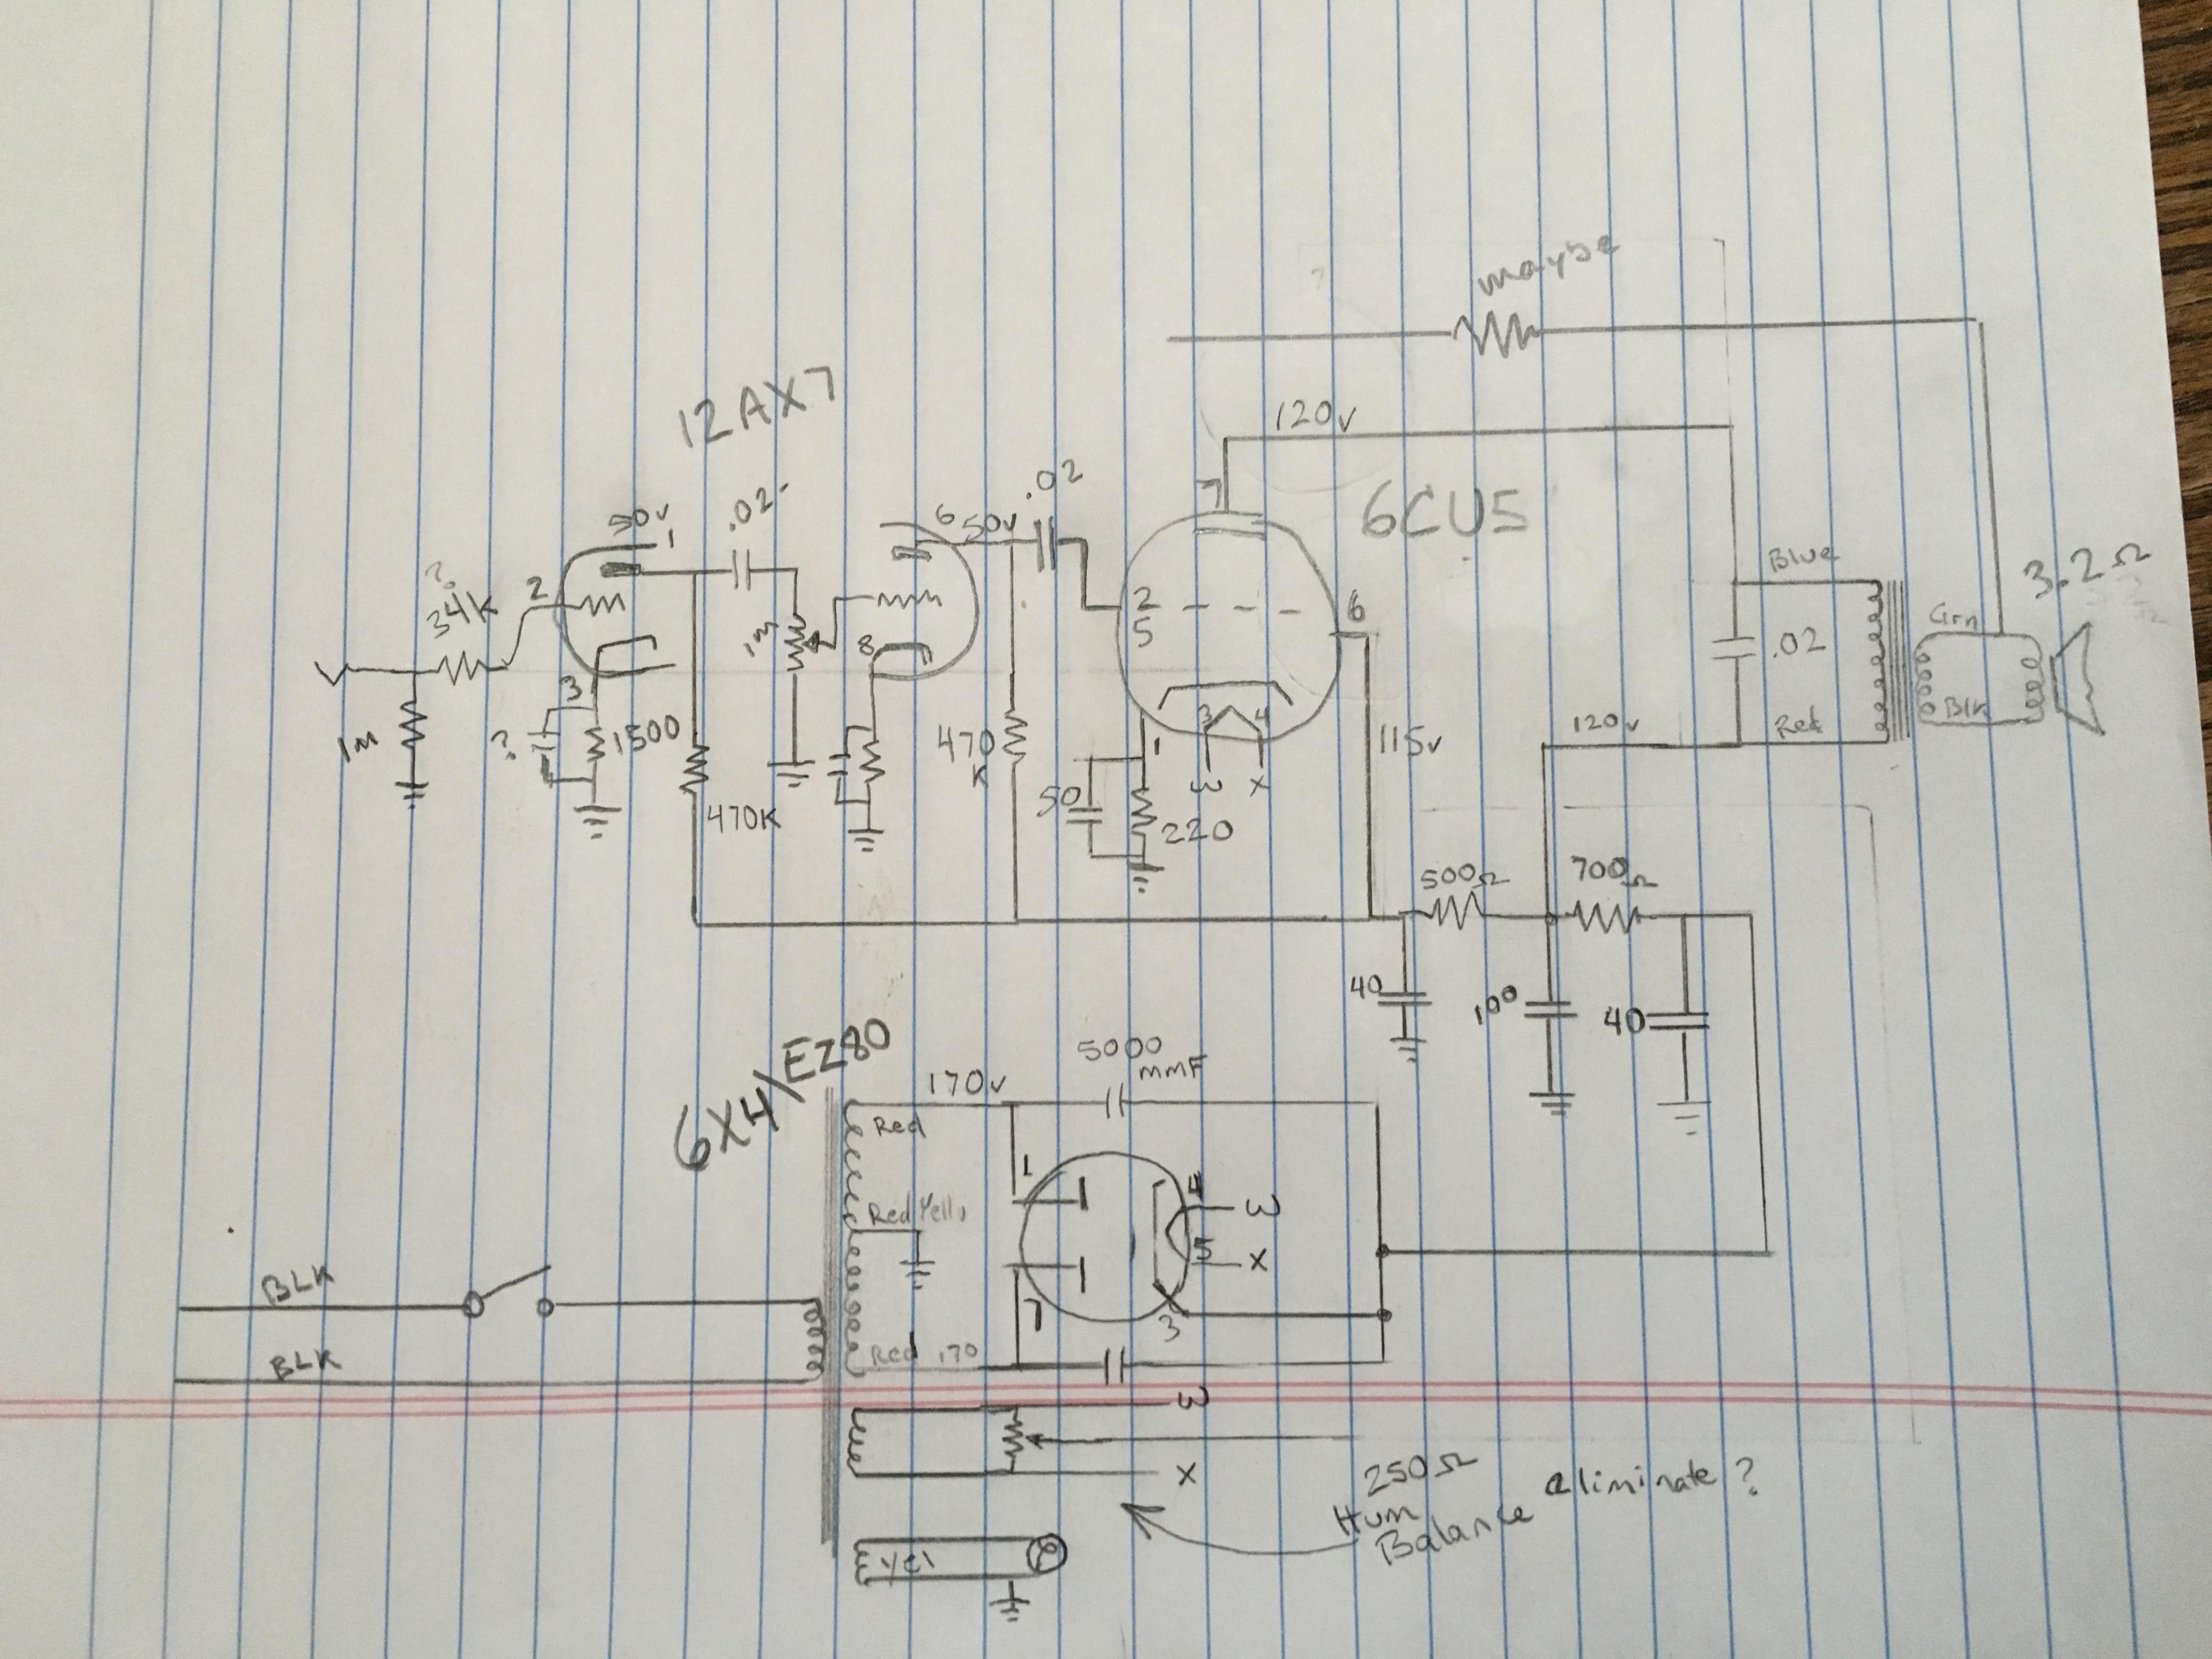 maybe
120v
12AX7
6CU5
.02
.02
30v
1
6
50v
7
Blue
3.2Ω
?
34K
2
2
5
6
Grn
.02
1m
8
3
1m
?
1500
470
K
1
3
4
115v
120v
Red
Blk
ω
X
50
220
470K
500Ω
700Ω
40
100
40
6X4/EZ80
170v
5000
mmF
Red
1
4
ω
Red Yell
5
X
BLK
7
3
BLK
Red 170
ω
X
250Ω
Hum
Balance eliminate?
Yel